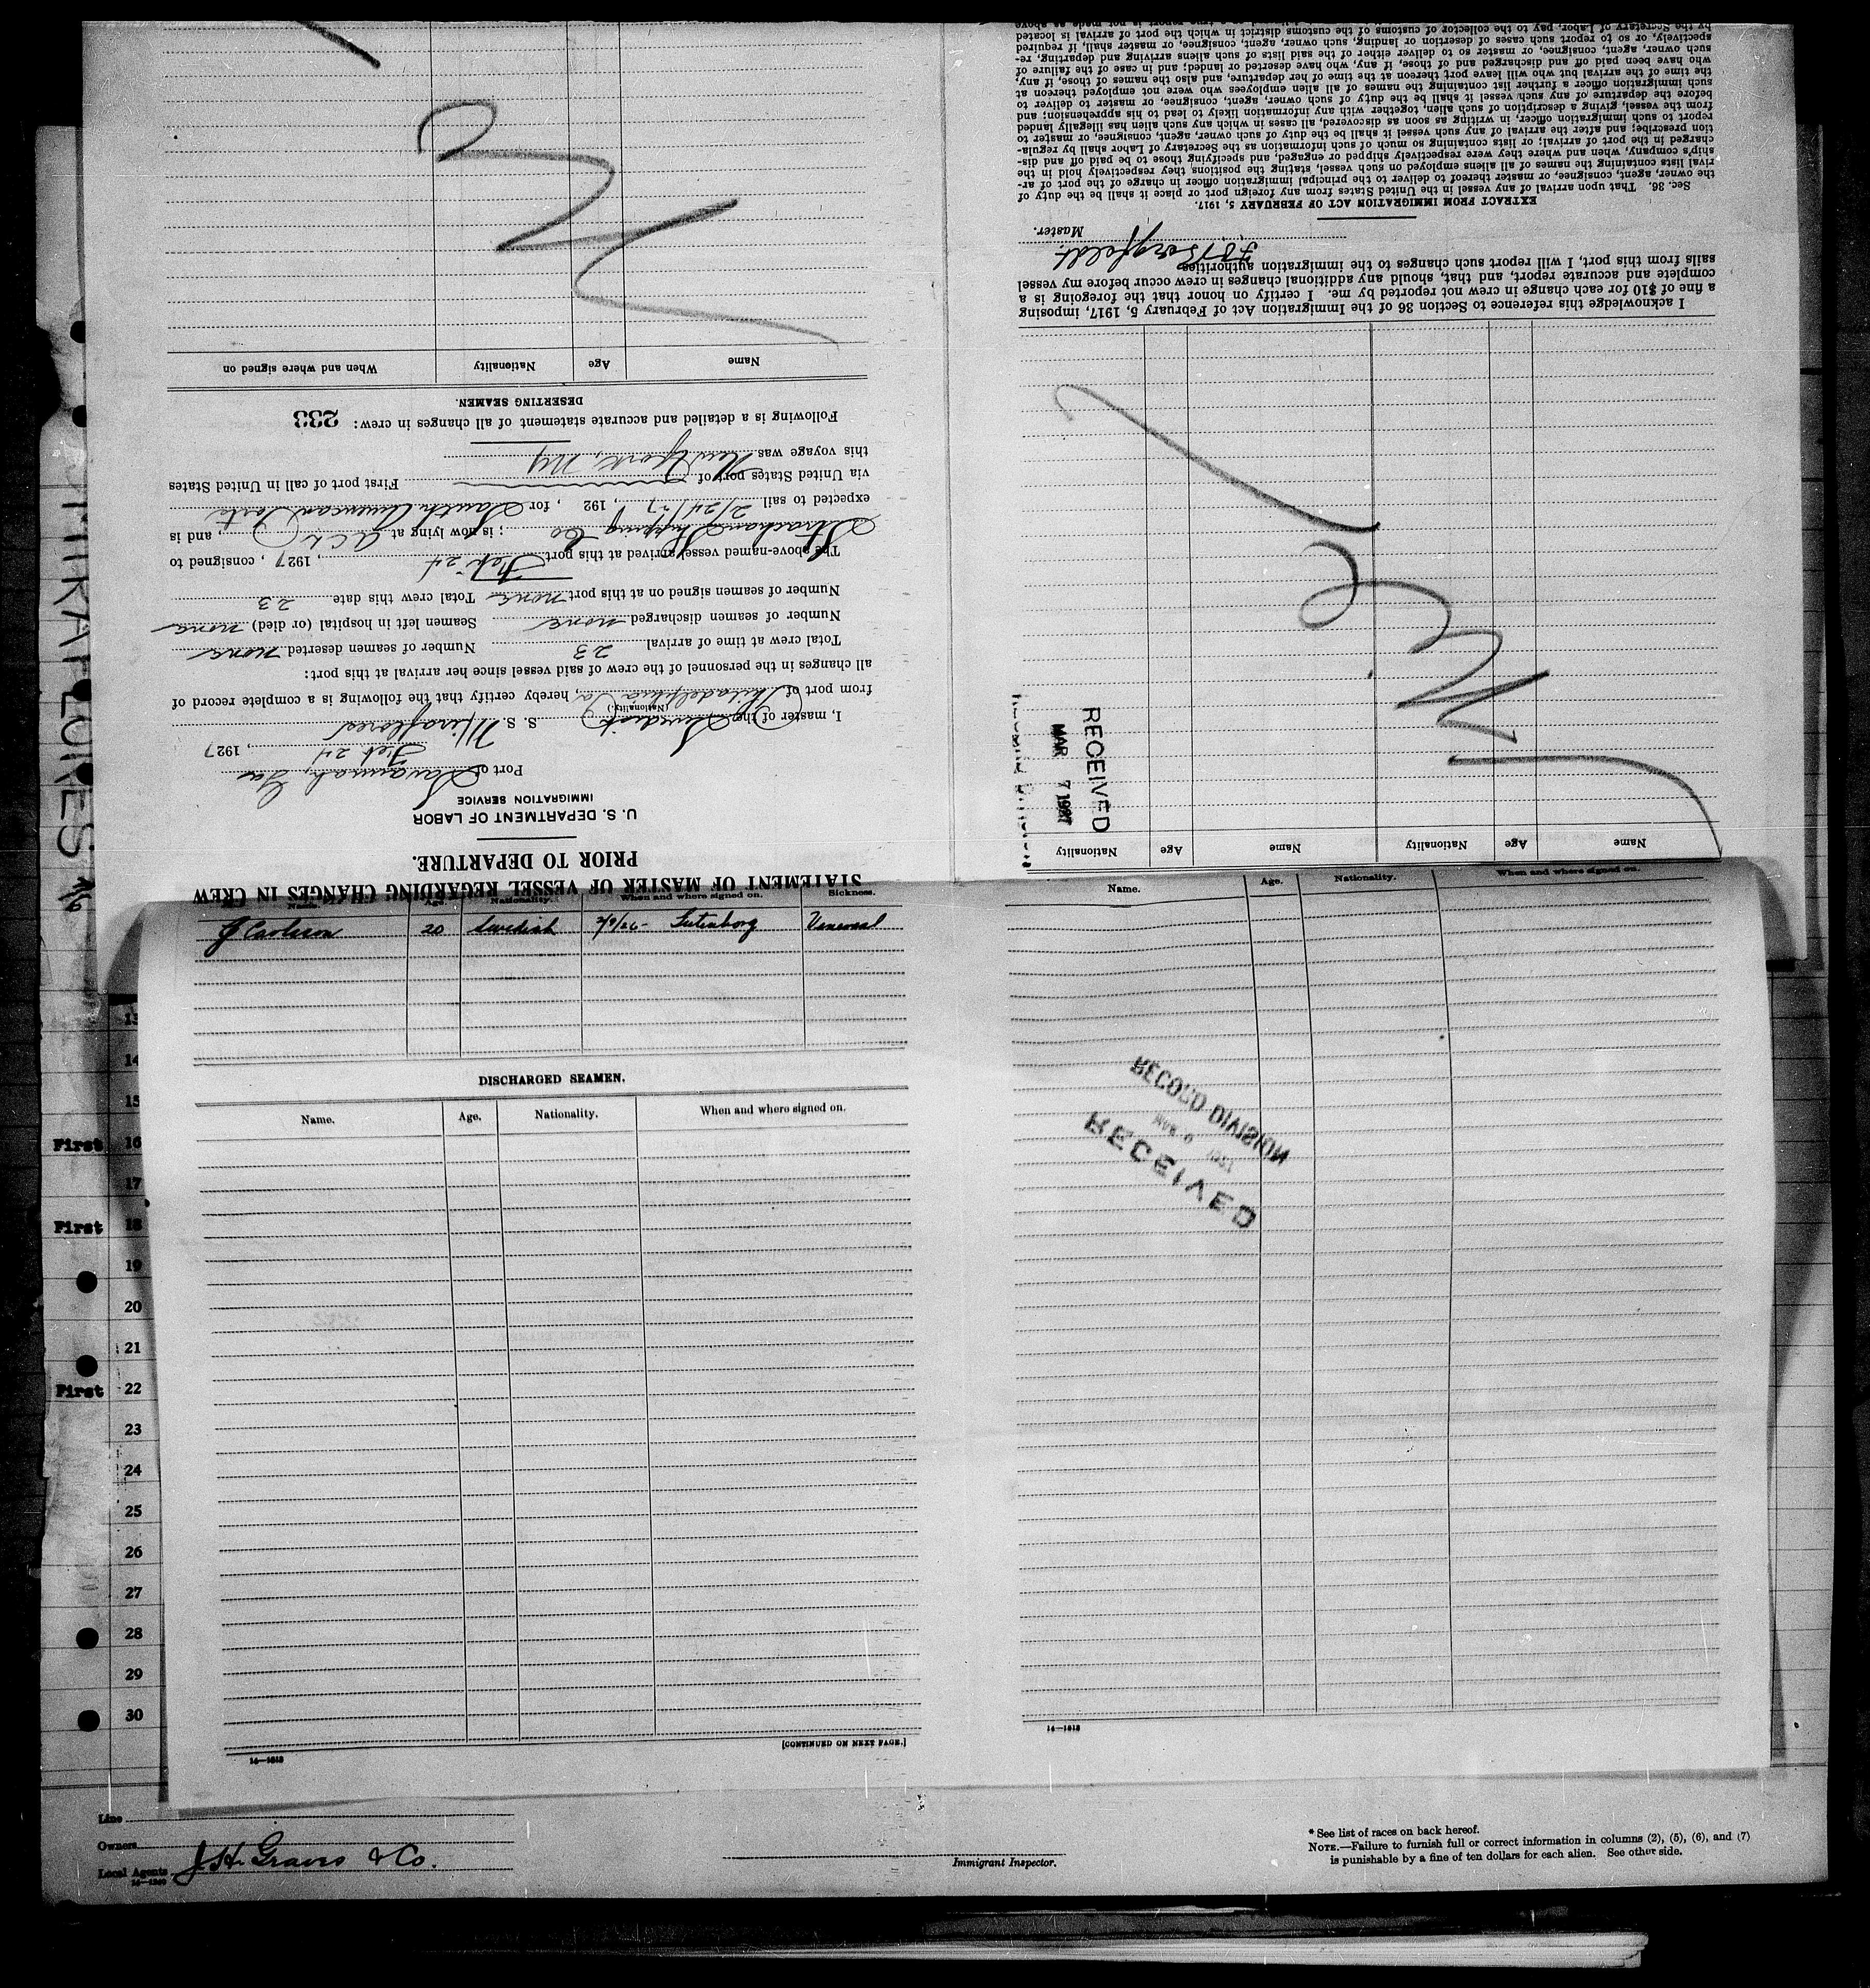 STATEMENT OF MASTER OF VESSEL REGARDING CHANGES IN CREW
PRIOR TO DEPARTURE.
U. S. DEPARTMENT OF LABOR
IMMIGRATION SERVICE
Port of Savannah, Ga
Feb 24, 1927
I, master of the Swedish S. S. Miraflores
(Nationality.)
from port of Philadelphia Pa, hereby certify that the following is a complete record of
all changes in the personnel of the crew of said vessel since her arrival at this port:
Total crew at time of arrival 23 Number of seamen deserted none
Number of seamen discharged none Seamen left in hospital (or died) none
Number of seamen signed on at this port none Total crew this date 23
The above-named vessel arrived at this port Feb 24, 1927, consigned to
Strachan Shipping Co; is now lying at ACL, and is
expected to sail 2/24/27, 192 , for South American Ports
via United States port of First port of call in United States
this voyage was New York, NY
Following is a detailed and accurate statement of all changes in crew: 233
DESERTING SEAMEN.
Name Age Nationality When and where signed on
Name Age Nationality Name Age Nationality
RECEIVED
MAR 7 1927
I acknowledge this reference to Section 36 of the Immigration Act of February 5, 1917, imposing
a fine of $10 for each change in crew not reported by me. I certify on honor that the foregoing is a
complete and accurate report, and that, should any additional changes in crew occur before my vessel
sails from this port, I will report such changes to the immigration authorities.
Master.
EXTRACT FROM IMMIGRATION ACT OF FEBRUARY 5, 1917.
Sec. 36. That upon arrival of any vessel in the United States from any foreign port or place it shall be the duty of
the owner, agent, consignee, or master thereof to deliver to the principal immigration officer in charge of the port of ar-
rival lists containing the names of all aliens employed on such vessel, stating the positions they respectively hold in the
ship's company, when and where they were respectively shipped or engaged, and specifying those to be paid off and dis-
charged in the port of arrival; or lists containing so much of such information as the Secretary of Labor shall by regula-
tion prescribe; and after the arrival of any such vessel it shall be the duty of such owner, agent, consignee, or master to
report to such immigration officer, in writing as soon as discovered, all cases in which any such alien has illegally landed
from the vessel, giving a description of such alien, together with any information likely to lead to his apprehension; and
before the departure of any such vessel it shall be the duty of such owner, agent, consignee, or master to deliver to
such immigration officer a further list containing the names of all alien employees who were not employed thereon at
the time of the arrival but who will leave port thereon at the time of her departure, and also the names of those, if any,
who have been paid off and discharged and of those, if any, who have deserted or landed; and in case of the failure of
such owner, agent, consignee, or master so to deliver either of the said lists of such aliens arriving and departing, re-
spectively, or so to report such cases of desertion or landing, such owner, agent, consignee, or master shall, if required
by the Secretary of Labor, pay to the collector of customs of the customs district in which the port of arrival is located
Name. Age. Nationality. When and where signed on. Sickness.
J Carlsson 20 Swedish 2/9/26- Venereal
DISCHARGED SEAMEN.
Name. Age. Nationality. When and where signed on.
[CONTINUED ON NEXT PAGE.]
14—1813
Name. Age. Nationality. When and where signed on.
RECORD DIVISION
RECEIVED
14—1813
MIRAFLORES
13
14
15
First 16
17
First 18
19
20
21
First 22
23
24
25
26
27
28
29
30
Line
Owners
Local Agents J. H. Graves & Co.
Immigrant Inspector.
* See list of races on back hereof.
NOTE.—Failure to furnish full or correct information in columns (2), (5), (6), and (7)
is punishable by a fine of ten dollars for each alien. See other side.